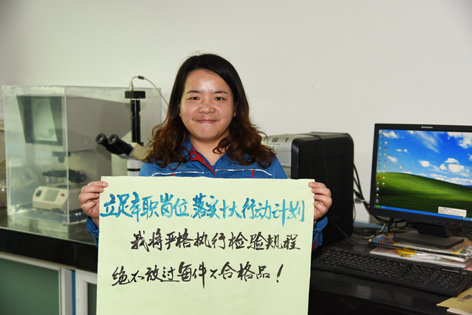 立足本职岗位 落实十大行动计划
我将严格执行检验规程
绝不放过每件不合格品！